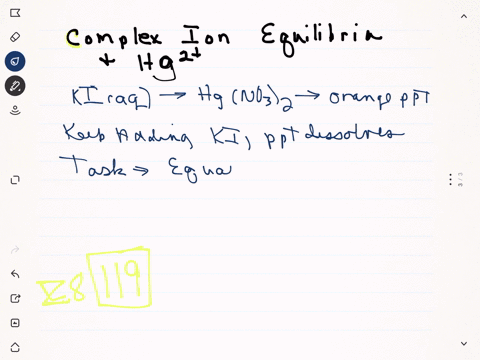 Complex Ion Equilibria
+ Hg2+
KI (aq) → Hg(NO3)2 → orange ppt
Keep Adding KI, ppt dissolves
Task ⇒ Equa
Z8 119